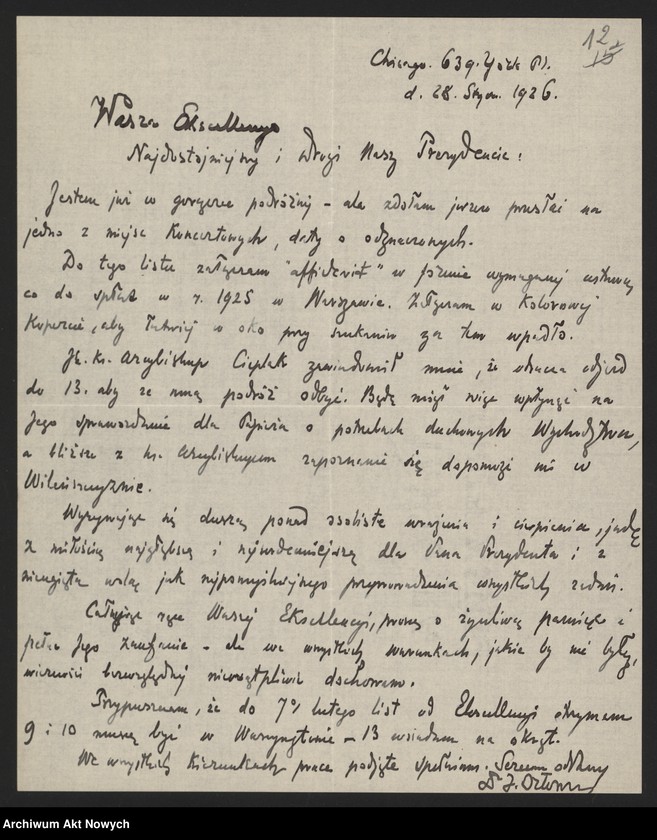 12
15
Chicago. 639. York Pl.
d. 28. Stycz. 1926.
Wasza Ekscellencjo
Najdostojniejszy i drogi Nasz Prezydencie!
Jestem już w gorączce podróżnej – ale zdołam jeszcze przesłać na
jedno z miejsc Koncertowych, daty o odznaczonych.
Do tego listu załączam "affidavit" w formie wymaganej ustawą
co do spłat w r. 1925 w Warszawie. Załączam w Kolorowej
Kopercie, aby łatwiej w oko przy szukaniu za tem wpadło.
Jk. Ks. Arcybiskup Cieplak zawiadomił mnie, że odracza odjazd
do 13. aby ze mną podróż odbyć. Będę mógł więc wpłynąć na
Jego sprawozdanie dla Papieża o potrzebach duchowych Wychodźtwa,
a bliższe z ks. Arcybiskupem zapoznanie się dopomoże mi w
Wileńszczyźnie.
Wyrywając się duszą ponad osobiste wrażenia i cierpienia, jadę
z miłością najgłębszą i najserdeczniejszą dla Pana Prezydenta i z
nieugiętą wolą jak najpomyślniejszego przeprowadzenia wszystkich zadań.
Całując ręce Waszej Ekscellencji, proszę o życzliwą pamięć i
pełne Jego zaufanie – ale we wszystkich warunkach, jakie by nie były,
wierności bezwzględnej niewątpliwie dochowam.
Przypuszczam, że do 7go lutego list od Ekscellencji otrzymam
9 i 10 muszę być w Waszyngtonie – 13 wsiadam na okręt.
We wszystkich kierunkach prace podjęte spełniam. Sercem oddany
Dr J. Orłowski
Archiwum Akt Nowych